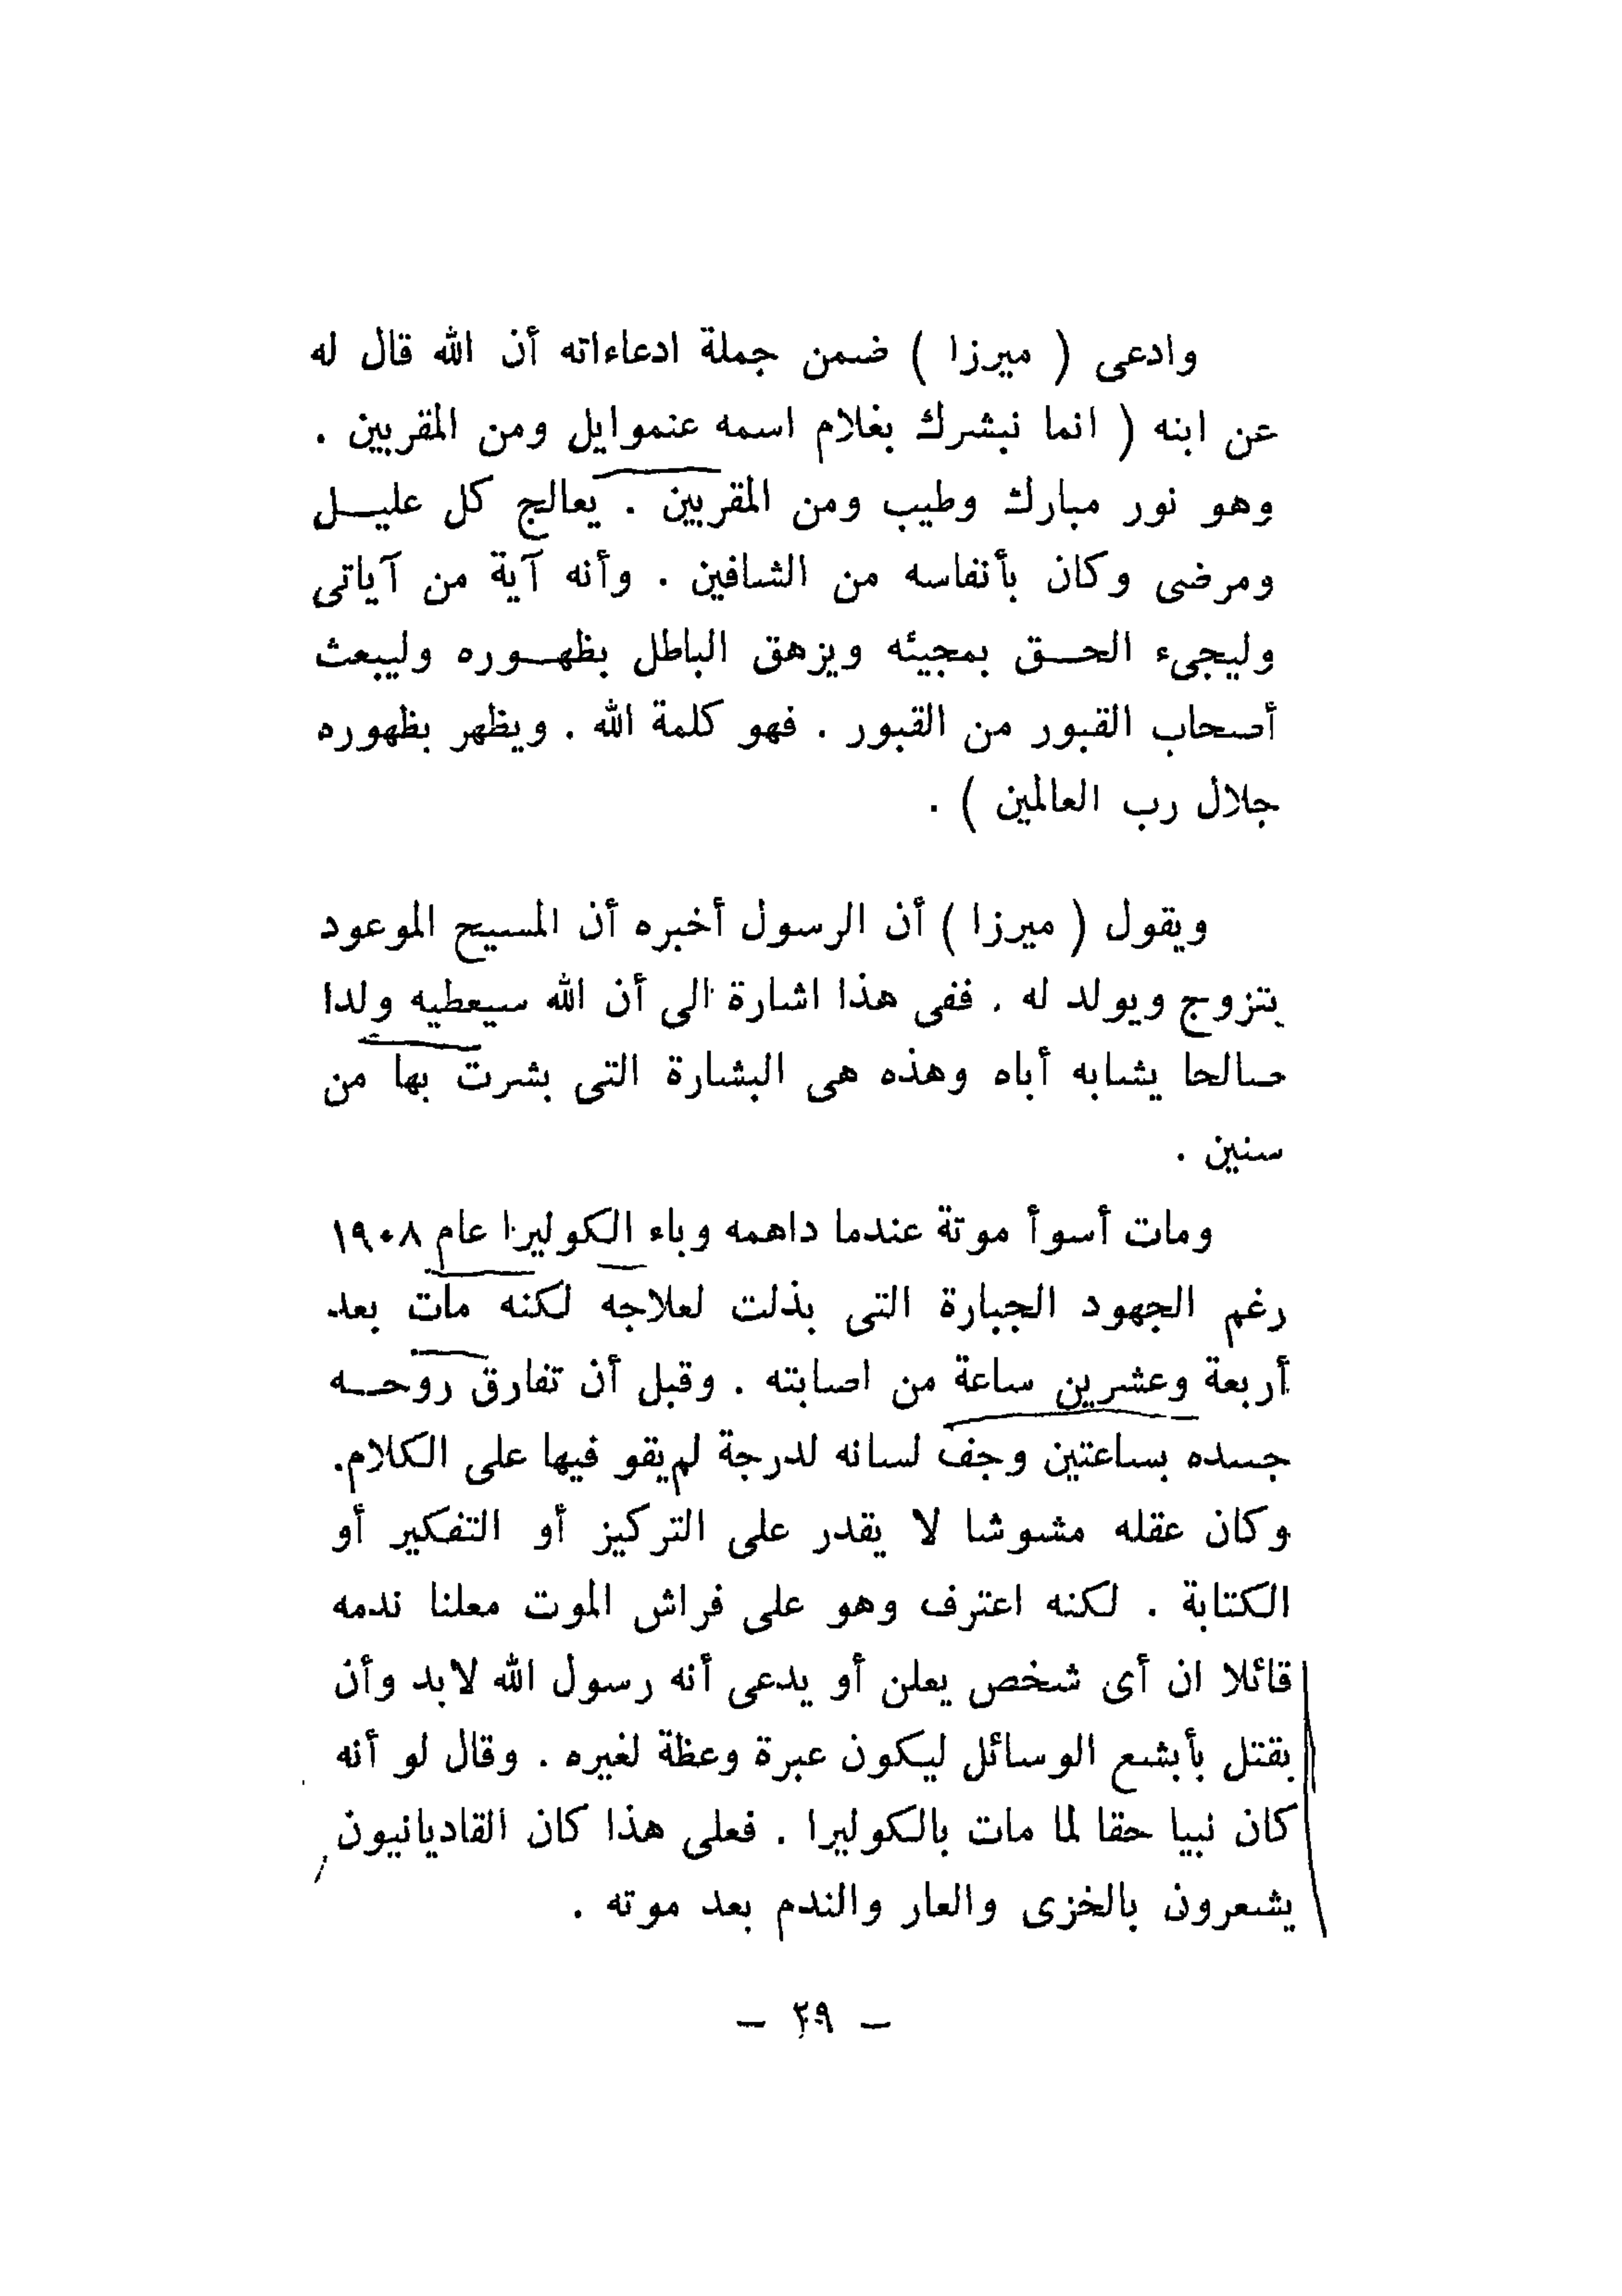 وادعى ( ميرزا ) ضمن جملة ادعاءاته أن الله قال له
عن ابنه ( انما نبشرك بغلام اسمه عنموايل ومن المقربين .
وهو نور مبارك وطيب ومن المقربين . يعالج كل عليل
ومرضى وكان بأنفاسه من الشافين . وأنه آية من آياتى
وليجىء الحق بمجيئه ويزهق الباطل بظهوره وليبعث
أصحاب القبور من القبور . فهو كلمة الله . ويظهر بظهوره
جلال رب العالمين ) .
ويقول ( ميرزا ) أن الرسول أخبره أن المسيح الموعود
يتزوج ويولد له . ففى هذا اشارة الى أن الله سيعطيه ولدا
صالحا يشابه أباه وهذه هى البشارة التى بشرت بها من
سنين .
ومات أسوأ موتة عندما داهمه وباء الكوليرا عام ١٩٠٨
رغم الجهود الجبارة التى بذلت لعلاجه لكنه مات بعد
أربعة وعشرين ساعة من اصابته . وقبل أن تفارق روحه
جسده بساعتين وجف لسانه لدرجة لم يقو فيها على الكلام.
وكان عقله مشوشا لا يقدر على التركيز أو التفكير أو
الكتابة . لكنه اعترف وهو على فراش الموت معلنا ندمه
قائلا ان أى شخص يعلن أو يدعى أنه رسول الله لابد وأن
يقتل بأبشع الوسائل ليكون عبرة وعظة لغيره . وقال لو أنه
كان نبيا حقا لما مات بالكوليرا . فعلى هذا كان القاديانيون
يشعرون بالخزى والعار والندم بعد موته .
– ٢٩ –